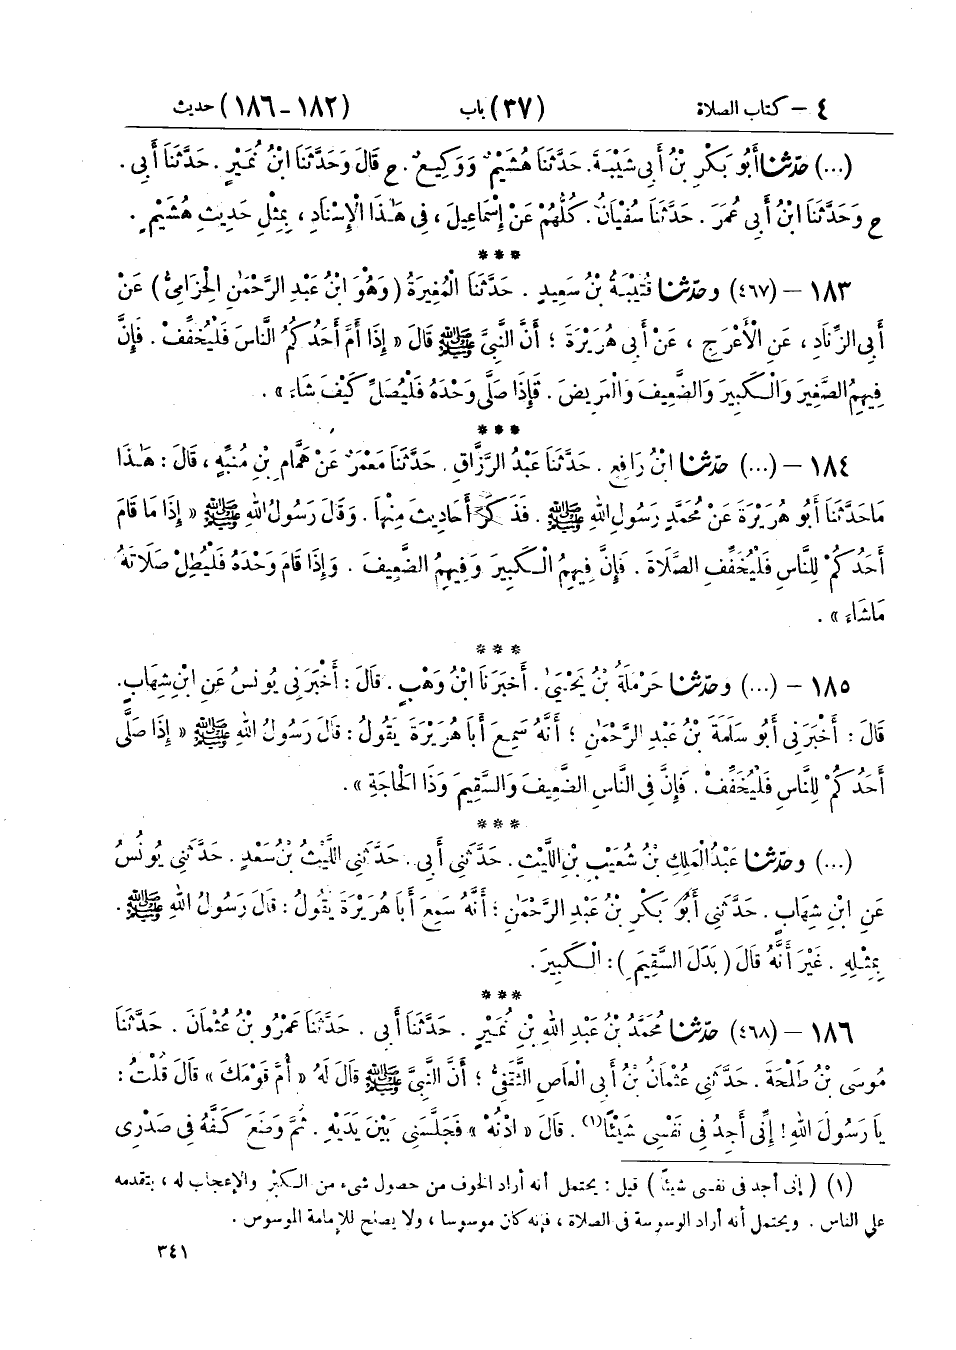 ٤ – كتاب الصلاة (٣٧) باب (١٨٢-١٨٦) حديث
(...) حَدَّثَنَا أَبُو بَكْرِ بْنُ أَبِي شَيْبَةَ. حَدَّثَنَا هُشَيْمٌ وَوَكِيعٌ. ح قَالَ وَحَدَّثَنَا ابْنُ نُمَيْرٍ. حَدَّثَنَا أَبِي.
ح وَحَدَّثَنَا ابْنُ أَبِي عُمَرَ. حَدَّثَنَا سُفْيَانُ. كُلُّهُمْ عَنْ إِسْمَاعِيلَ، فِي هَٰذَا الْإِسْنَادِ، بِمِثْلِ حَدِيثِ هُشَيْمٍ.
***
١٨٣ – (٤٦٧) وحَدَّثَنَا قُتَيْبَةُ بْنُ سَعِيدٍ. حَدَّثَنَا الْمُغِيرَةُ (وَهُوَ ابْنُ عَبْدِ الرَّحْمَٰنِ الْحِزَامِيُّ) عَنْ
أَبِي الزِّنَادِ، عَنِ الْأَعْرَجِ، عَنْ أَبِي هُرَيْرَةَ؛ أَنَّ النَّبِيَّ ﷺ قَالَ «إِذَا أَمَّ أَحَدُكُمُ النَّاسَ فَلْيُخَفِّفْ. فَإِنَّ
فِيهِمُ الصَّغِيرَ وَالْكَبِيرَ وَالضَّعِيفَ وَالْمَرِيضَ. فَإِذَا صَلَّى وَحْدَهُ فَلْيُصَلِّ كَيْفَ شَاءَ».
***
١٨٤ – (...) حَدَّثَنَا ابْنُ رَافِعٍ. حَدَّثَنَا عَبْدُ الرَّزَّاقِ. حَدَّثَنَا مَعْمَرٌ عَنْ هَمَّامِ بْنِ مُنَبِّهٍ، قَالَ: هَٰذَا
مَا حَدَّثَنَا أَبُو هُرَيْرَةَ عَنْ مُحَمَّدٍ رَسُولِ اللهِ ﷺ. فَذَكَرَ أَحَادِيثَ مِنْهَا. وَقَالَ رَسُولُ اللهِ ﷺ «إِذَا مَا قَامَ
أَحَدُكُمْ لِلنَّاسِ فَلْيُخَفِّفِ الصَّلَاةَ. فَإِنَّ فِيهِمُ الْكَبِيرَ وَفِيهِمُ الضَّعِيفَ. وَإِذَا قَامَ وَحْدَهُ فَلْيُطِلْ صَلَاتَهُ
مَا شَاءَ».
***
١٨٥ – (...) وحَدَّثَنَا حَرْمَلَةُ بْنُ يَحْيَىٰ. أَخْبَرَنَا ابْنُ وَهْبٍ. قَالَ: أَخْبَرَنِي يُونُسُ عَنِ ابْنِ شِهَابٍ.
قَالَ: أَخْبَرَنِي أَبُو سَلَمَةَ بْنُ عَبْدِ الرَّحْمَٰنِ؛ أَنَّهُ سَمِعَ أَبَا هُرَيْرَةَ يَقُولُ: قَالَ رَسُولُ اللهِ ﷺ «إِذَا صَلَّى
أَحَدُكُمْ لِلنَّاسِ فَلْيُخَفِّفْ. فَإِنَّ فِي النَّاسِ الضَّعِيفَ وَالسَّقِيمَ وَذَا الْحَاجَةِ».
***
(...) وحَدَّثَنَا عَبْدُ الْمَلِكِ بْنُ شُعَيْبِ بْنِ اللَّيْثِ. حَدَّثَنِي أَبِي. حَدَّثَنِي اللَّيْثُ بْنُ سَعْدٍ. حَدَّثَنِي يُونُسُ
عَنِ ابْنِ شِهَابٍ. حَدَّثَنِي أَبُو بَكْرِ بْنُ عَبْدِ الرَّحْمَٰنِ؛ أَنَّهُ سَمِعَ أَبَا هُرَيْرَةَ يَقُولُ: قَالَ رَسُولُ اللهِ ﷺ.
بِمِثْلِهِ. غَيْرَ أَنَّهُ قَالَ (بَدَلَ السَّقِيمَ): الْكَبِيرَ.
***
١٨٦ – (٤٦٨) حَدَّثَنَا مُحَمَّدُ بْنُ عَبْدِ اللهِ بْنِ نُمَيْرٍ. حَدَّثَنَا أَبِي. حَدَّثَنَا عَمْرُو بْنُ عُثْمَانَ. حَدَّثَنَا
مُوسَى بْنُ طَلْحَةَ. حَدَّثَنِي عُثْمَانُ بْنُ أَبِي الْعَاصِ الثَّقَفِيُّ؛ أَنَّ النَّبِيَّ ﷺ قَالَ لَهُ «أُمَّ قَوْمَكَ» قَالَ قُلْتُ:
يَا رَسُولَ اللهِ! إِنِّي أَجِدُ فِي نَفْسِي شَيْئًا(١). قَالَ «ادْنُهْ» فَجَلَّسَنِي بَيْنَ يَدَيْهِ. ثُمَّ وَضَعَ كَفَّهُ فِي صَدْرِي
(١) (إني أجد في نفسي شيئًا) قيل: يحتمل أنه أراد الخوف من حصول شيء من الكبر والإعجاب له، بتقدمه
على الناس. ويحتمل أنه أراد الوسوسة في الصلاة، فإنه كان موسوسا، ولا يصلح للإمامة الموسوس.
٣٤١